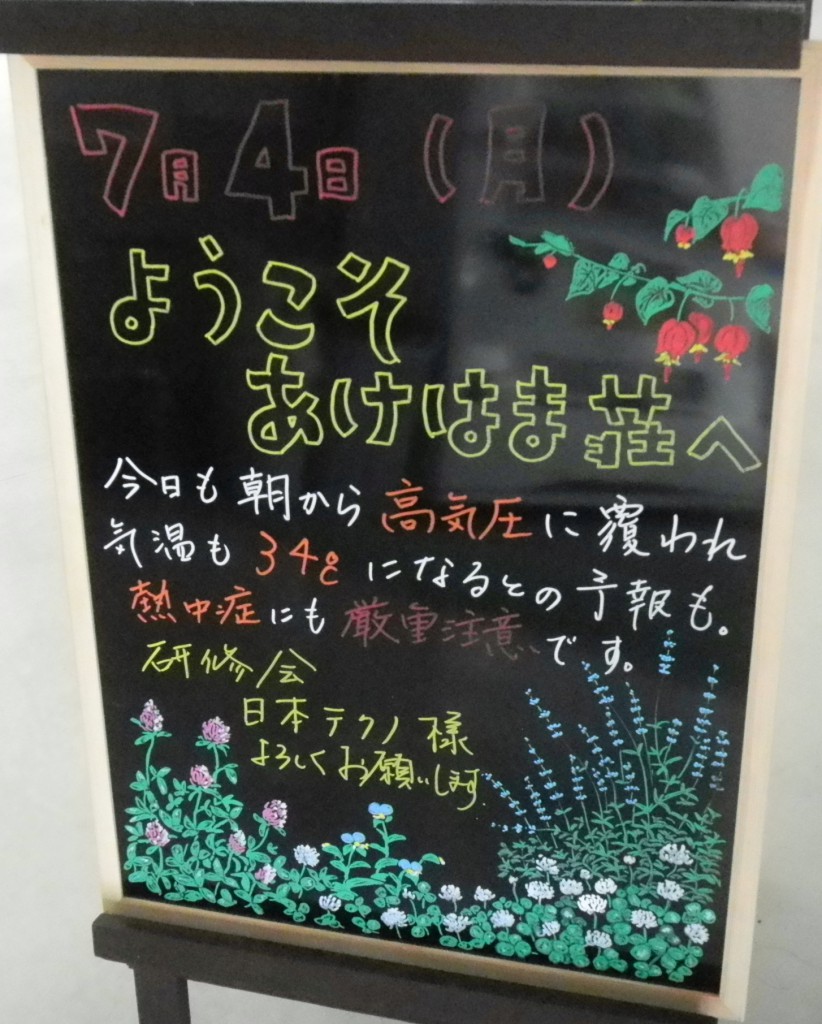 7月4日（月）
ようこそ
あけはま荘へ
今日も朝から高気圧に覆われ
気温も34℃になるとの予報も。
熱中症にも厳重注意です。
研修会
日本テクノ様
よろしくお願いします